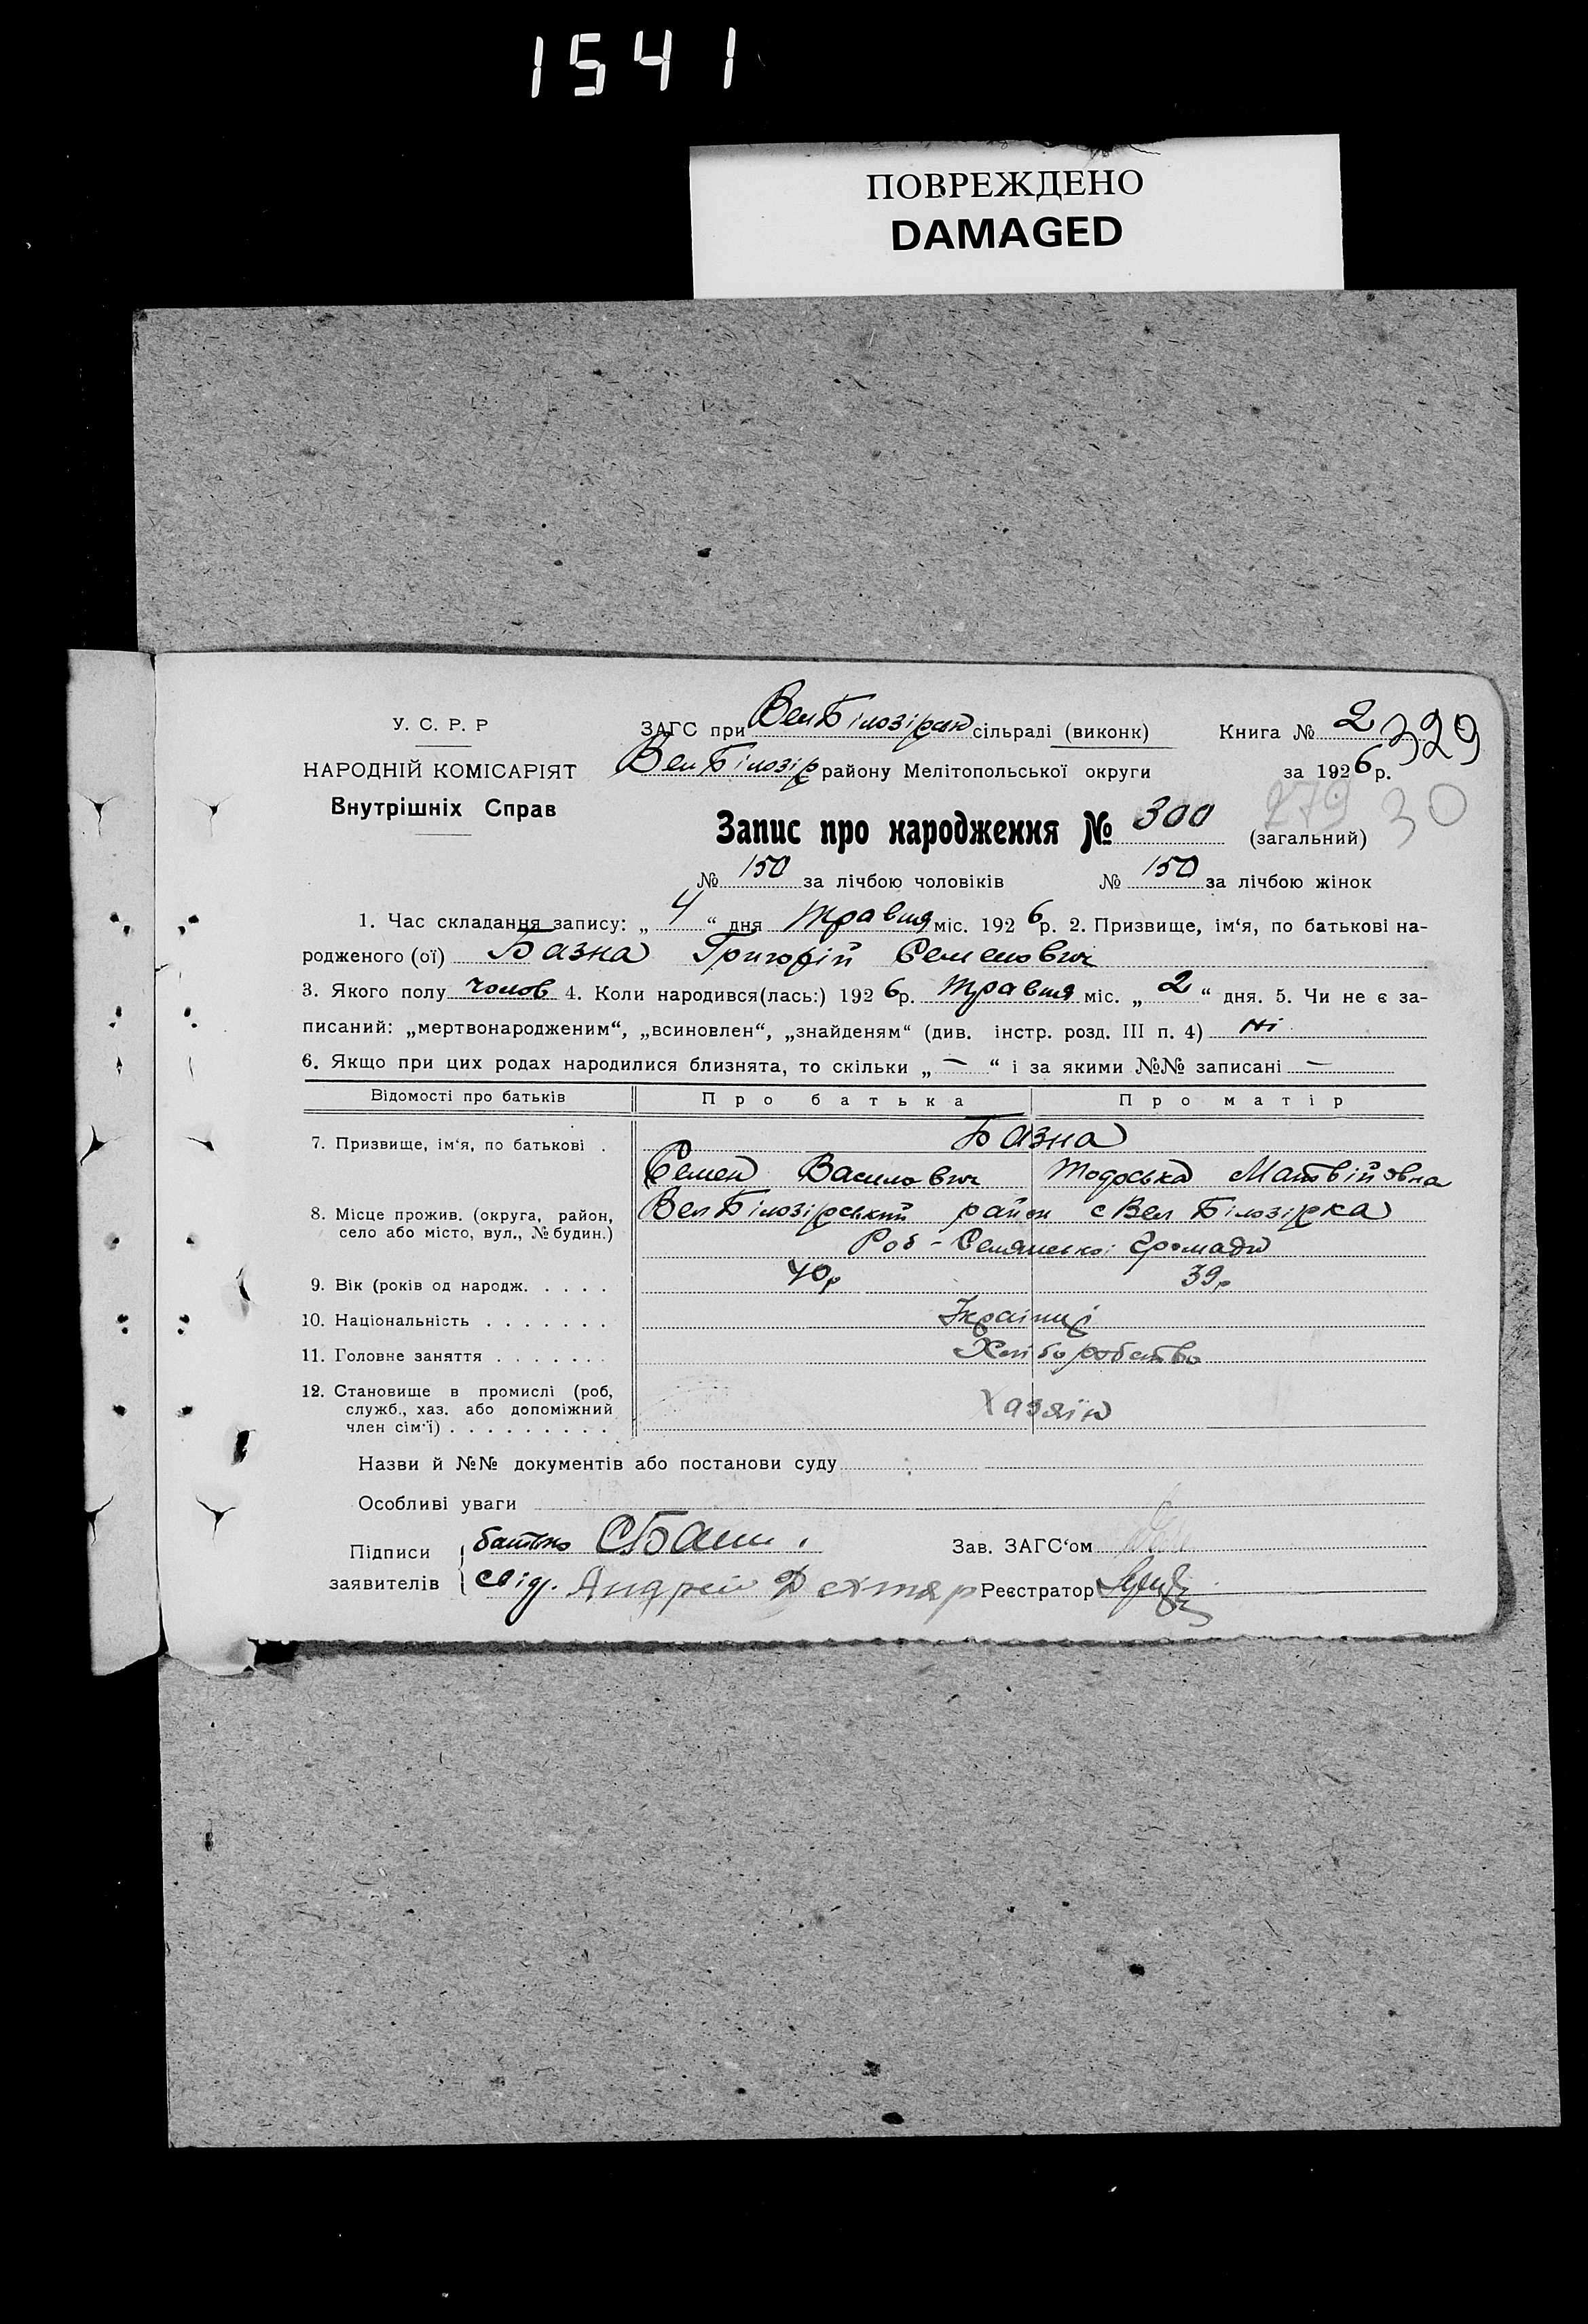 1541
ПОВРЕЖДЕНО
DAMAGED
У. С. Р. Р
НАРОДНІЙ КОМІСАРІЯТ
Внутрішніх Справ
ЗАГС при ВелБілозірськ сільраді (виконк)
ВелБілозір району Мелітопольської округи
Книга № 2 329
за 1926 р.
Запис про народження № 300 (загальний) 279 30
№ 150 за лічбою чоловіків № 150 за лічбою жінок
1. Час складання запису: „ 4 “ дня Травня міс. 1926 р. 2. Призвище, ім‘я, по батькові на-
родженого (ої) Базна Григорій Семенович
3. Якого полу чолов 4. Коли народився(лась:) 1926 р. Травня міс. „ 2 “ дня. 5. Чи не є за-
писаний: „мертвонародженим“, „всиновлен“, „знайденям“ (див. інстр. розд. III п. 4) ні
6. Якщо при цих родах народилися близнята, то скільки „ — “ і за якими №№ записані —
Відомості про батьків Про батька Про матір
7. Призвище, ім‘я, по батькові . Базна
Семен Василович Тодоська Матвійовна
8. Місце прожив. (округа, район, село або місто, вул., № будин.) ВелБілозірський район с Вел Білозірка
Роб - Селянської громади
9. Вік (років од народж. . . . . 40р 39р
10. Національність . . . . . . . Українці
11. Головне заняття . . . . . . . Хліборобство
12. Становище в промислі (роб, служб., хаз. або допоміжний член сім‘ї) . . . . . . . . . Хазяїн
Назви й №№ документів або постанови суду
Особливі уваги
Підписи заявителів батько СБазн
свід. Андрей Дехтяр
Зав. ЗАГС‘ом
Реєстратор